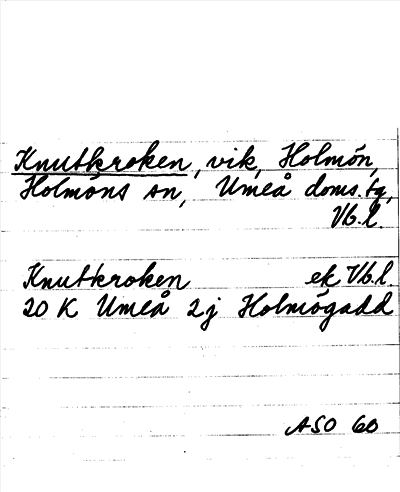 Knutkroken, vik, Holmön,
Holmöns sn, Umeå doms.tg,
Vb.l.
Knutkroken ek Vb.l.
20 K Umeå 2j Holmögadd
ASO 60